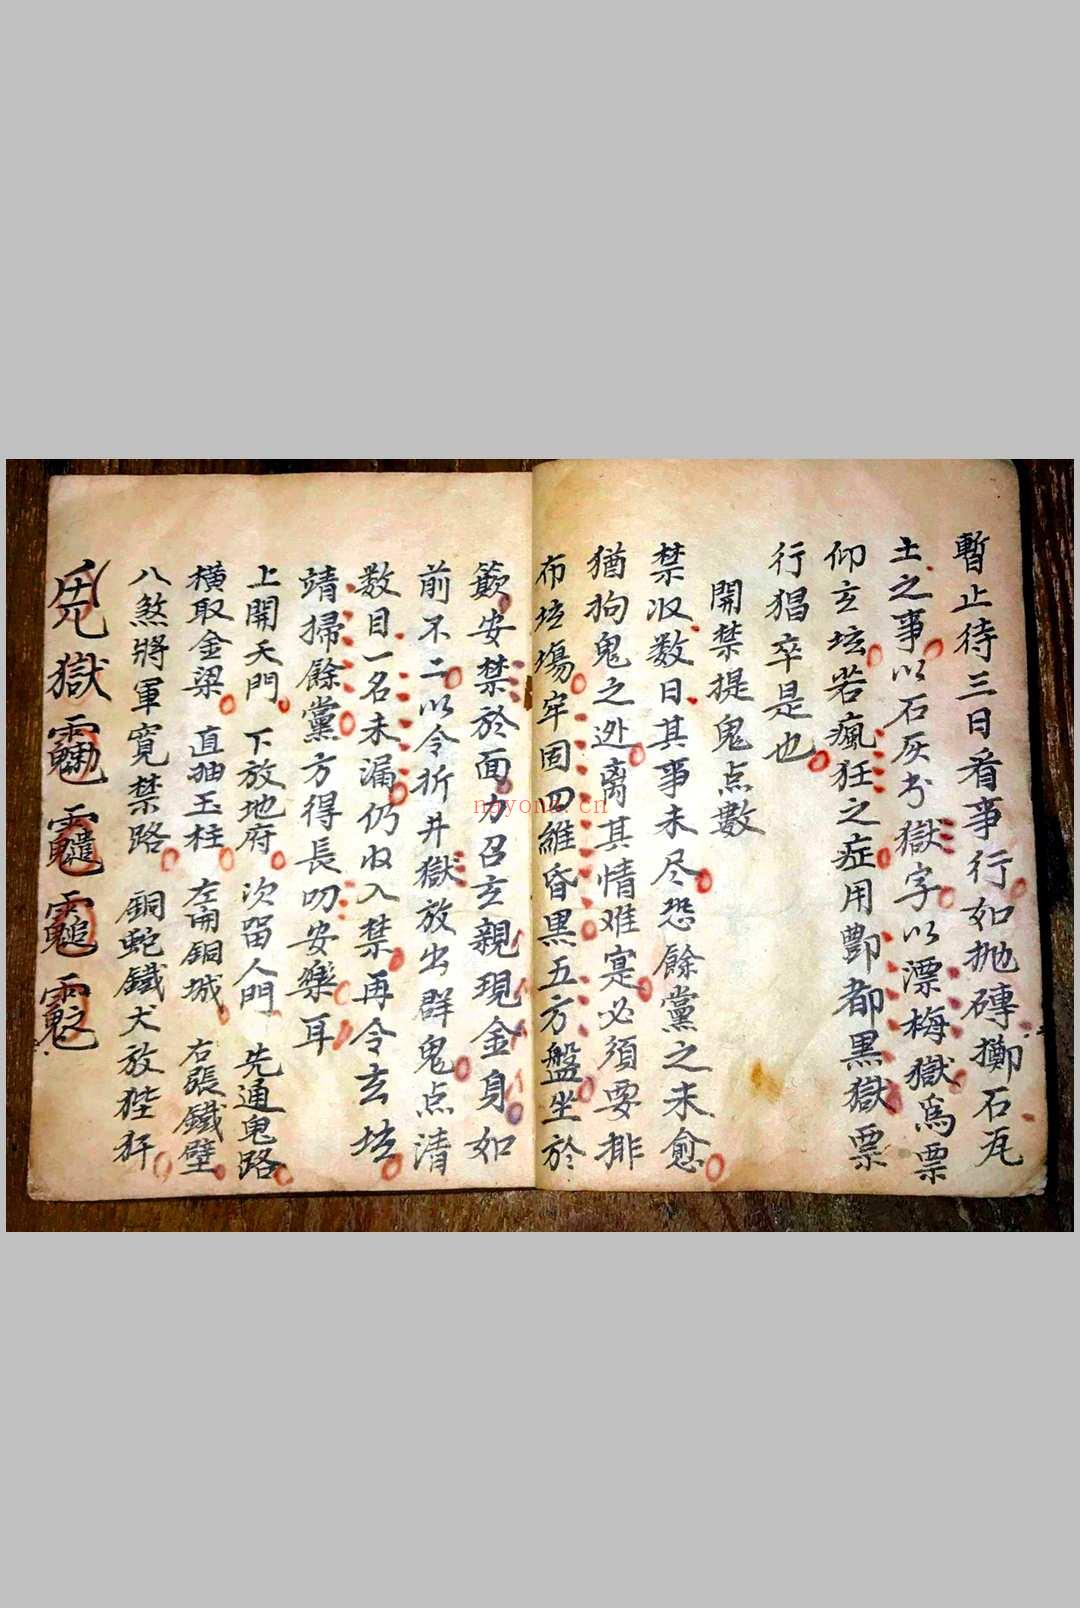 暫止待三日看事行如抛磚擲石瓦
土之事以石灰書獄字以漂梅獄為票
仰玄坛若瘋狂之症用酆都黑獄票
行猖卒是也
開禁提鬼点數
禁収数日其事未尽恐餘黨之未愈
猶狗鬼之迯离其情难寔必須要排
布坛塲牢固四維昏黒五方盤坐於
安禁於面力召玄親現金身如
前不二以令折井獄放出群鬼点清
数目一名未漏仍収入禁再令玄坛
靖掃餘黨方得長叨安樂耳
上開天門 下放地府 次留人門 先通鬼路
橫取金梁 直抽玉柱 左開銅城 右張鐵壁
八煞將軍寬禁路 銅蛇鐵犬放狴犴
獄
nayona.cn